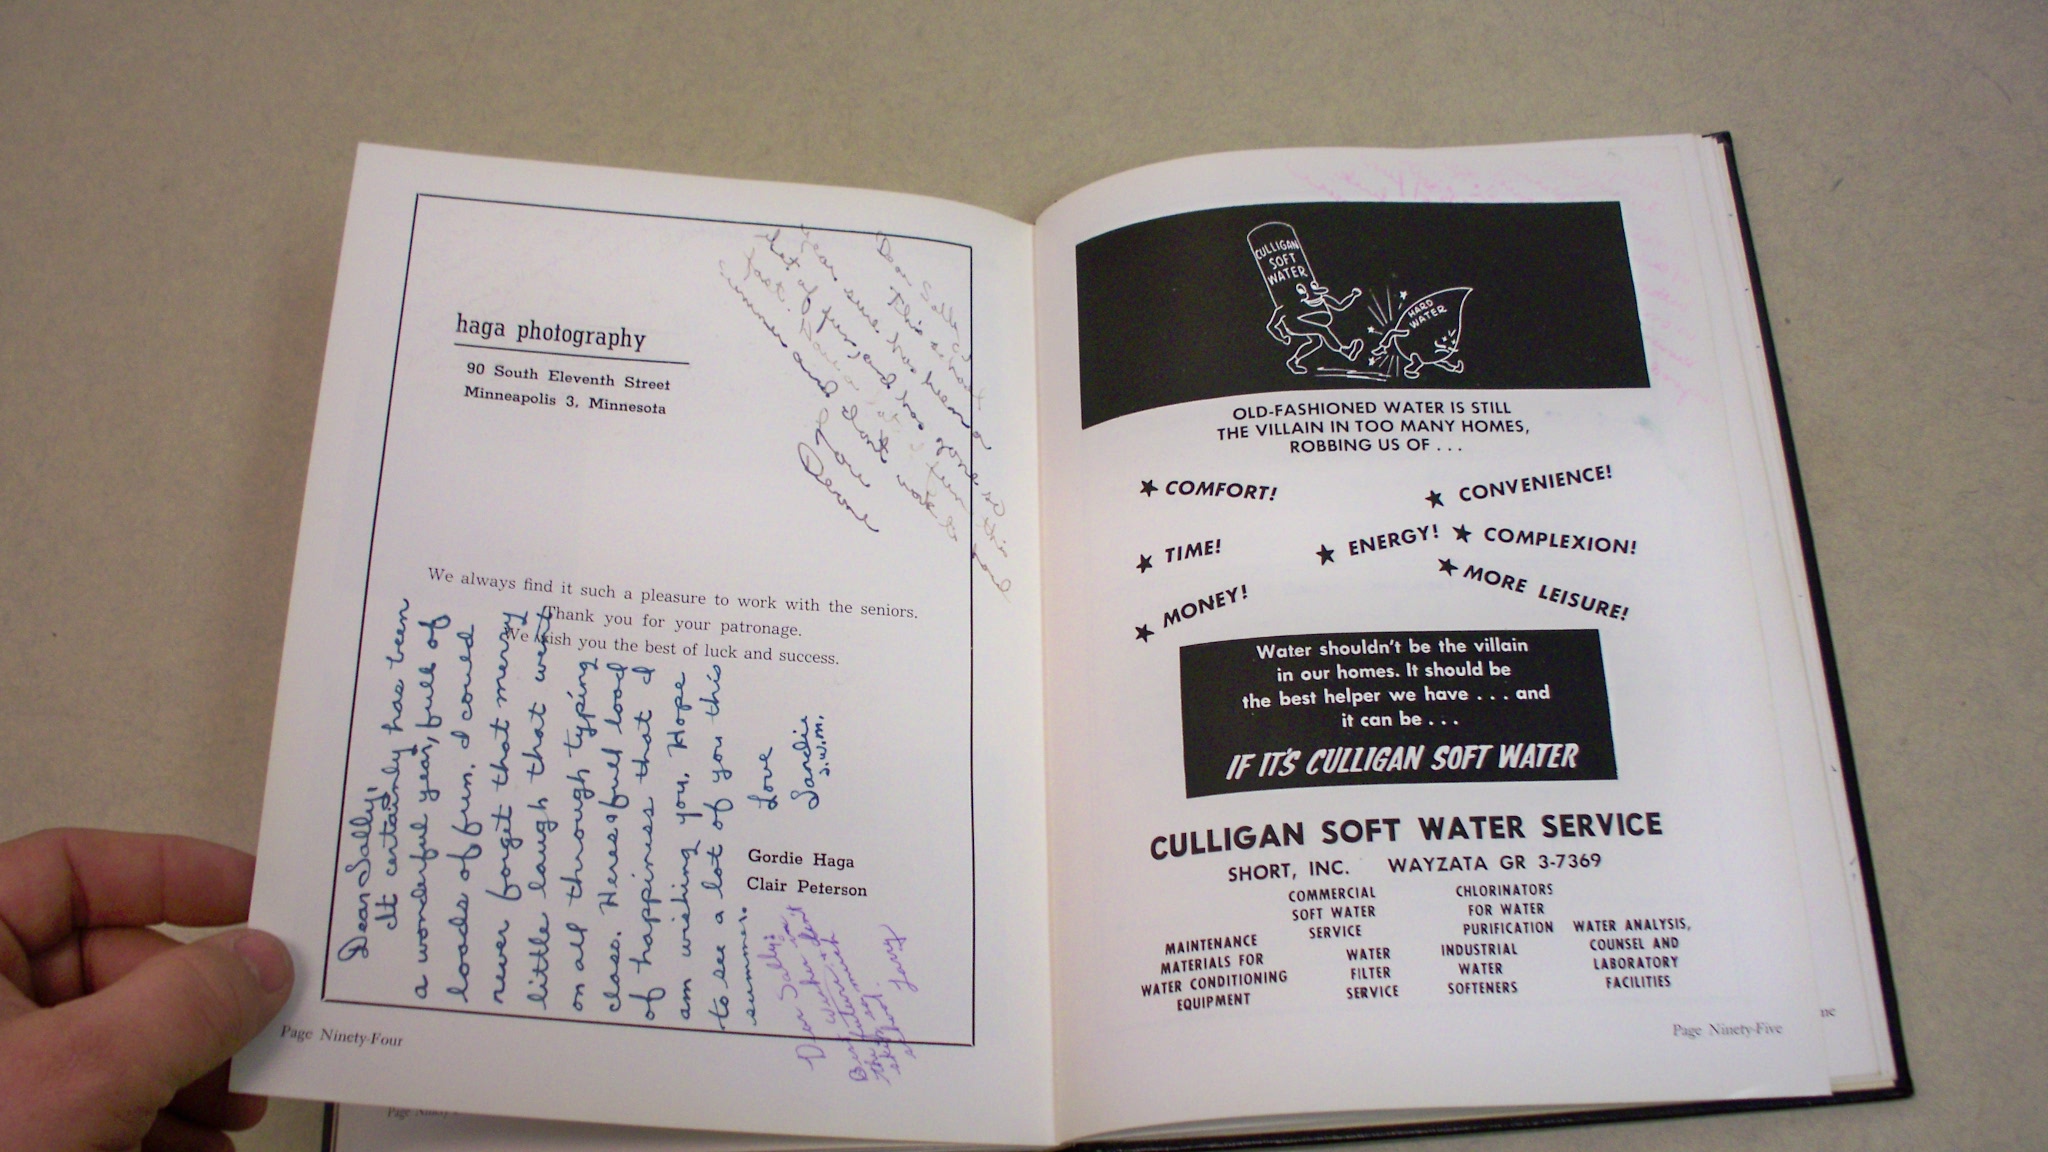 haga photography
90 South Eleventh Street
Minneapolis 3, Minnesota
Dear Sally,
This
year sure has been a
lot of fun and
summer and
Love
We always find it such a pleasure to work with the seniors.
Thank you for your patronage.
We wish you the best of luck and success.
Dear Sally,
It certainly has been
a wonderful year, full of
loads of fun. I could
never forget that merry
little laugh that went
on all through typing
class. Heres a full load
of happiness that I
am wishing you. Hope
to see a lot of you this
summer.
Love
Sandi
S.W.M.
Gordie Haga
Clair Peterson
Dear Sally:
school. Larry
Page Ninety-Four
CULLIGAN
SOFT
WATER
HARD
WATER
OLD-FASHIONED WATER IS STILL
THE VILLAIN IN TOO MANY HOMES,
ROBBING US OF . . .
COMFORT!
CONVENIENCE!
TIME!
ENERGY!
COMPLEXION!
MONEY!
MORE LEISURE!
Water shouldn't be the villain
in our homes. It should be
the best helper we have . . . and
it can be . . .
IF IT'S CULLIGAN SOFT WATER
CULLIGAN SOFT WATER SERVICE
SHORT, INC. WAYZATA GR 3-7369
MAINTENANCE
MATERIALS FOR
WATER CONDITIONING
EQUIPMENT
COMMERCIAL
SOFT WATER
SERVICE
WATER
FILTER
SERVICE
CHLORINATORS
FOR WATER
PURIFICATION
INDUSTRIAL
WATER
SOFTENERS
WATER ANALYSIS,
COUNSEL AND
LABORATORY
FACILITIES
Page Ninety-Five